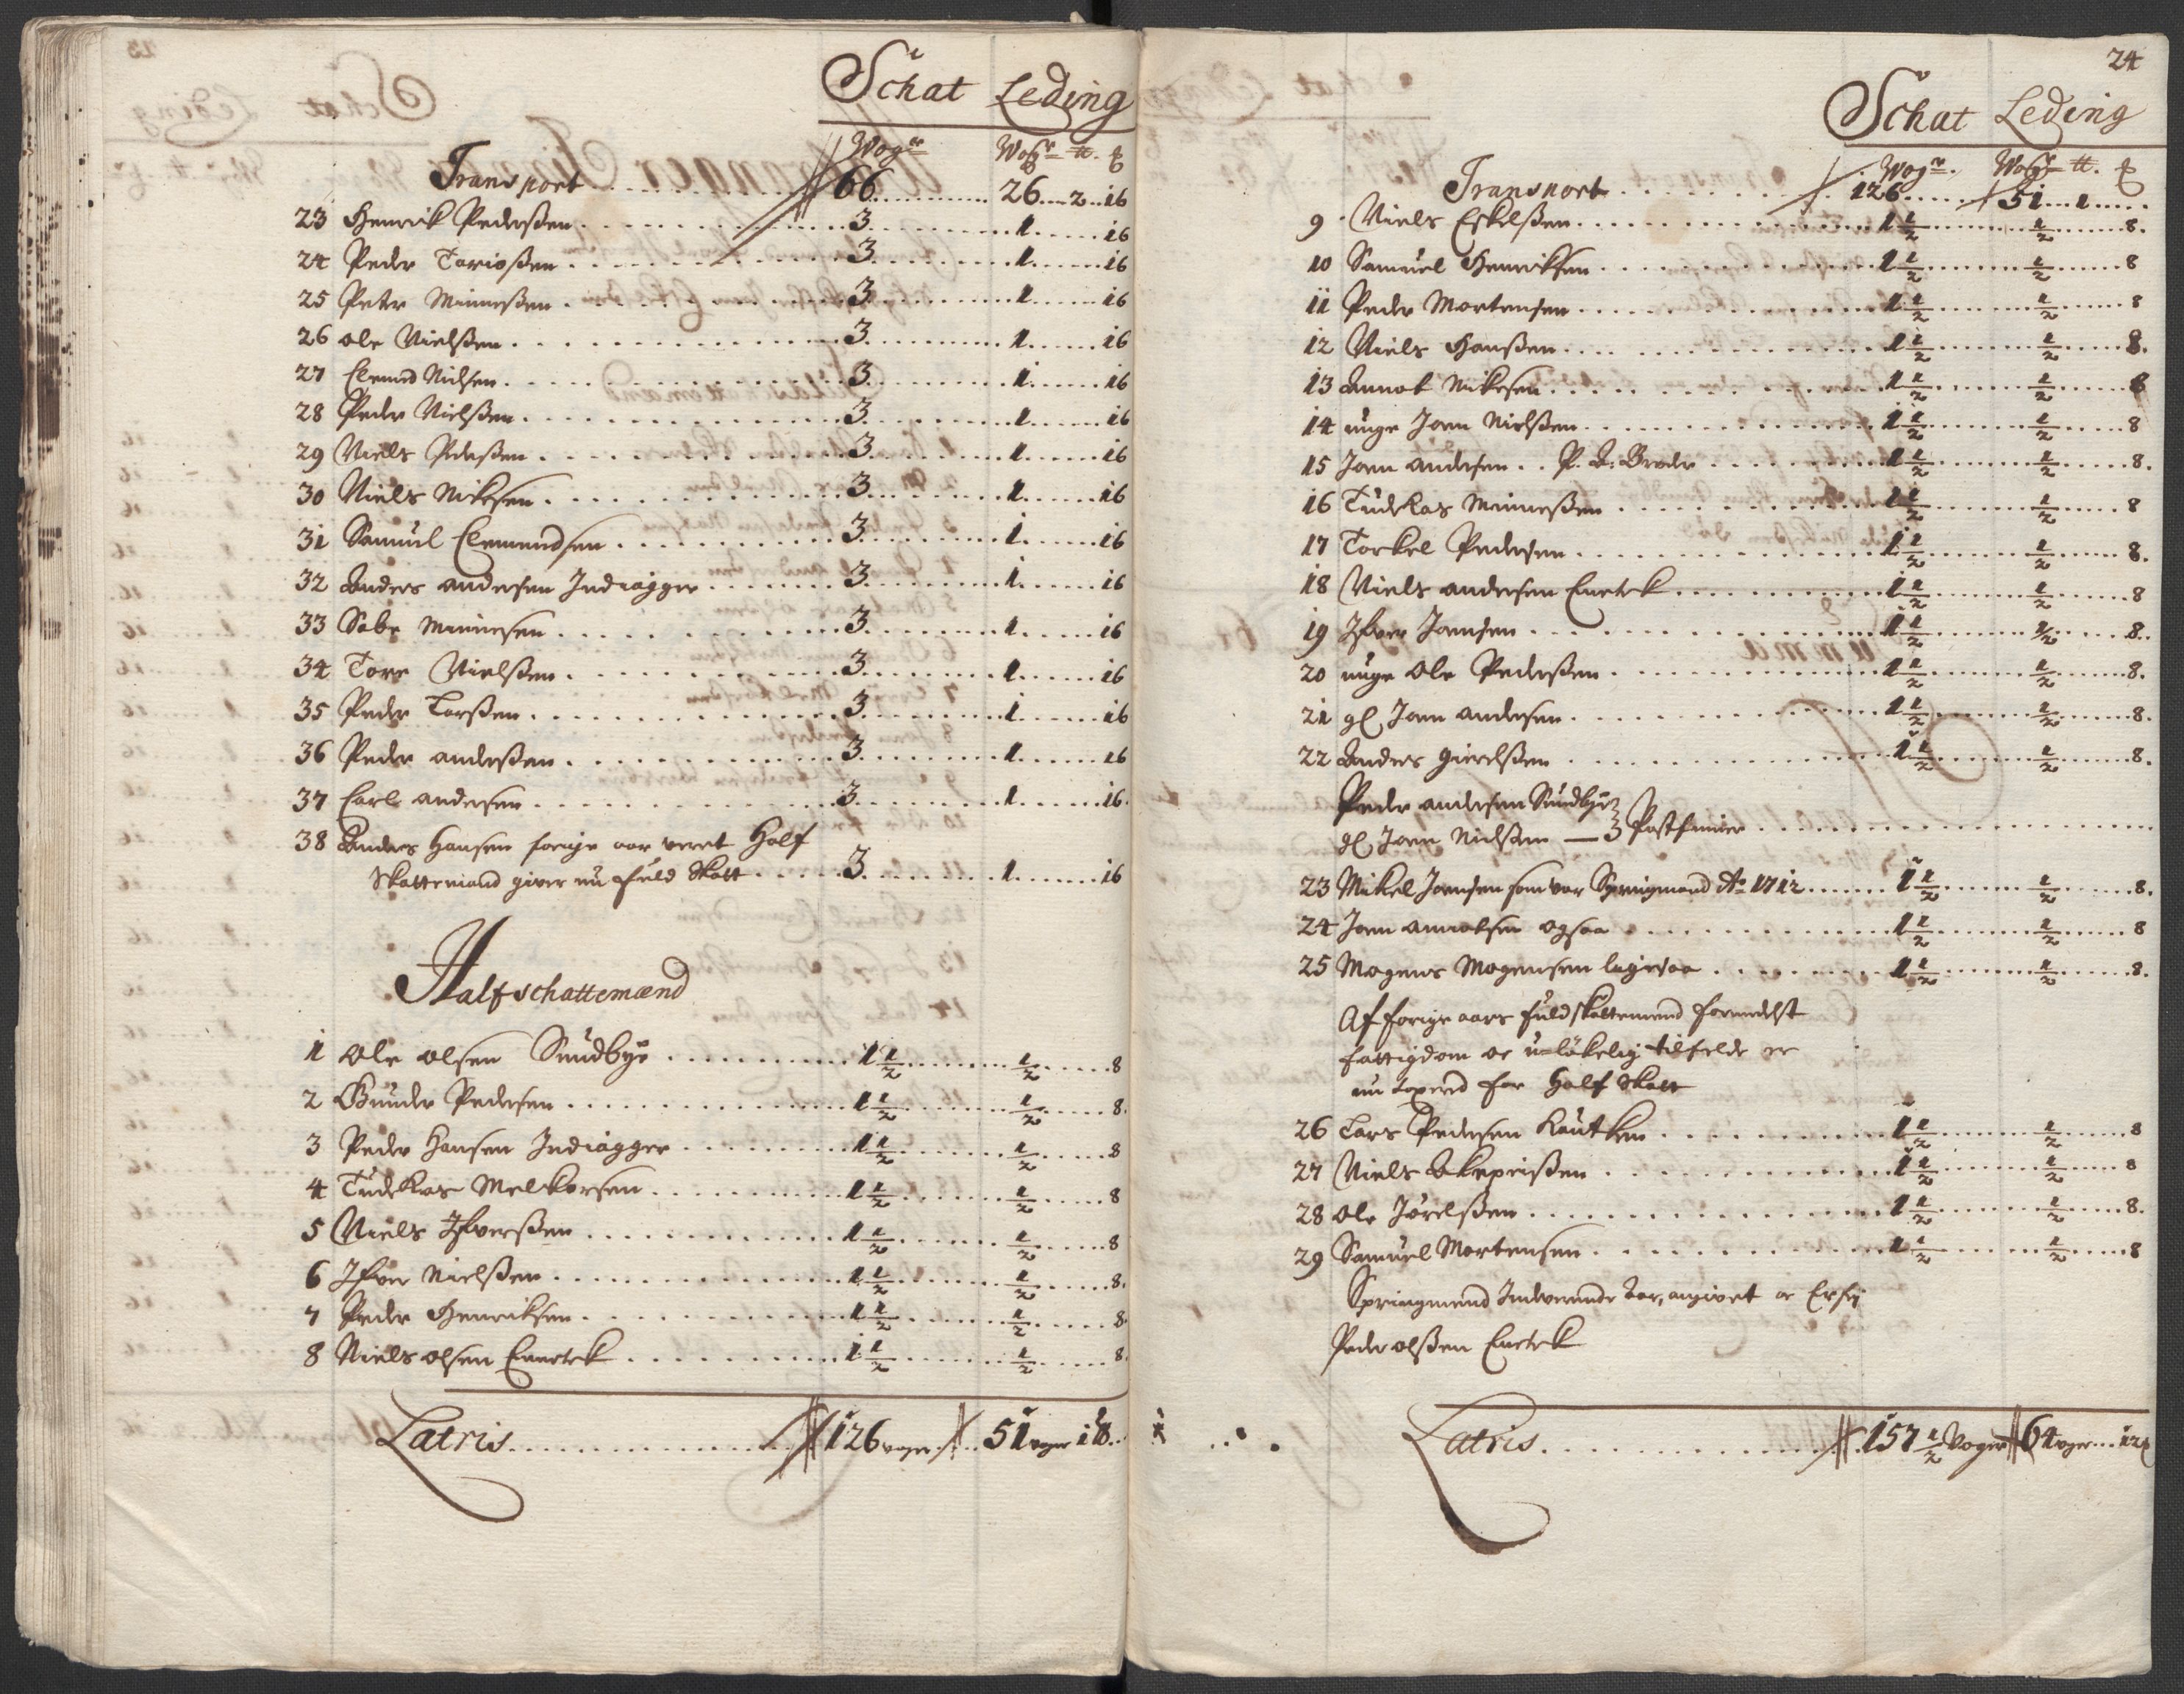 Schat Leding
Wogr Wogr tt. 
Transport 66 26 2 16
23 Henrik Pederßen 3 1 16
24 Peder Torisßen 3 1 16
25 Peter Minneßen 3 1 16
26 Ole Nielßen 3 1 16
27 Clemed Nielsen 3 1 16
28 Peder Nielßen 3 1 16
29 Niels Pederßen 3 1 16
30 Niels Nikesen 3 1 16
31 Samuel Clemendsen 3 1 16
32 Anders Andersen Indiagger 3 1 16
33 Sabe Minnesen 3 1 16
34 Tore Nielßen 3 1 16
35 Peder Larßen 3 1 16
36 Peder Anderßen 3 1 16
37 Carl Andersen 3 1 16
38 Anders Hansen forige aar veret Half
Skattemand giver nu fuld Skatt 3 1 16
Half schattemænd
1 Ole Olsen Sundbye 1 1/2 1/2 8
2 Gunder Pedersen 1 1/2 1/2 8
3 Peder Hansen Indiagger 1 1/2 1/2 8
4 Tudekas Melkorsen 1 1/2 1/2 8
5 Niels Ifverßen 1 1/2 1/2 8
6 Ifver Nielßen 1 1/2 1/2 8
7 Peder Henriksen 1 1/2 1/2 8
8 Niels Olsen Enertk 1 1/2 1/2 8
Latris 126 voger 51 voger 1 tt
24
Schat Leding
Wogr. Wogr tt. 
Transport 126 51 1
9 Niels Eskelßen 1 1/2 1/2 8
10 Samuel Henriksen 1 1/2 1/2 8
11 Peder Mortensen 1 1/2 1/2 8
12 Niels Hanßen 1 1/2 1/2 8
13 Aunot Nikesen 1 1/2 1/2 8
14 unge Joen Nielßen 1 1/2 1/2 8
15 Joen Andersen P. A. Broder 1 1/2 1/2 8
16 Tudekas Minneßen 1 1/2 1/2 8
17 Torkel Pedersen 1 1/2 1/2 8
18 Niels Andersen Enertk 1 1/2 1/2 8
19 Ifver Joensen 1 1/2 1/2 8
20 unge Ole Pederßen 1 1/2 1/2 8
21 gl Joen Andersen 1 1/2 1/2 8
22 Anders Gierelßen 1 1/2 1/2 8
Peder Andersen Sundbye
gl Joen Nielßen Postfinner
23 Mikel Joensen som var Springmand Ao 1712 1 1/2 1/2 8
24 Joen Aunotsen ogsaa 1 1/2 1/2 8
25 Mogens Mogensen ligesaa 1 1/2 1/2 8
Af forige aars fuldskattemend formedelst
fattigdom oc u-lökelig tilfelde er
nu Taxered for Half Skatt
26 Lars Pedersen Kautken 1 1/2 1/2 8
27 Niels Akeprißen 1 1/2 1/2 8
28 Ole Jörelßen 1 1/2 1/2 8
29 Samuel Mortensen 1 1/2 1/2 8
Springmend Indeverende Aar, angivet er Ersij
Peder Olßen Enertk
Latris 157 1/2 Voger 64 voger 12